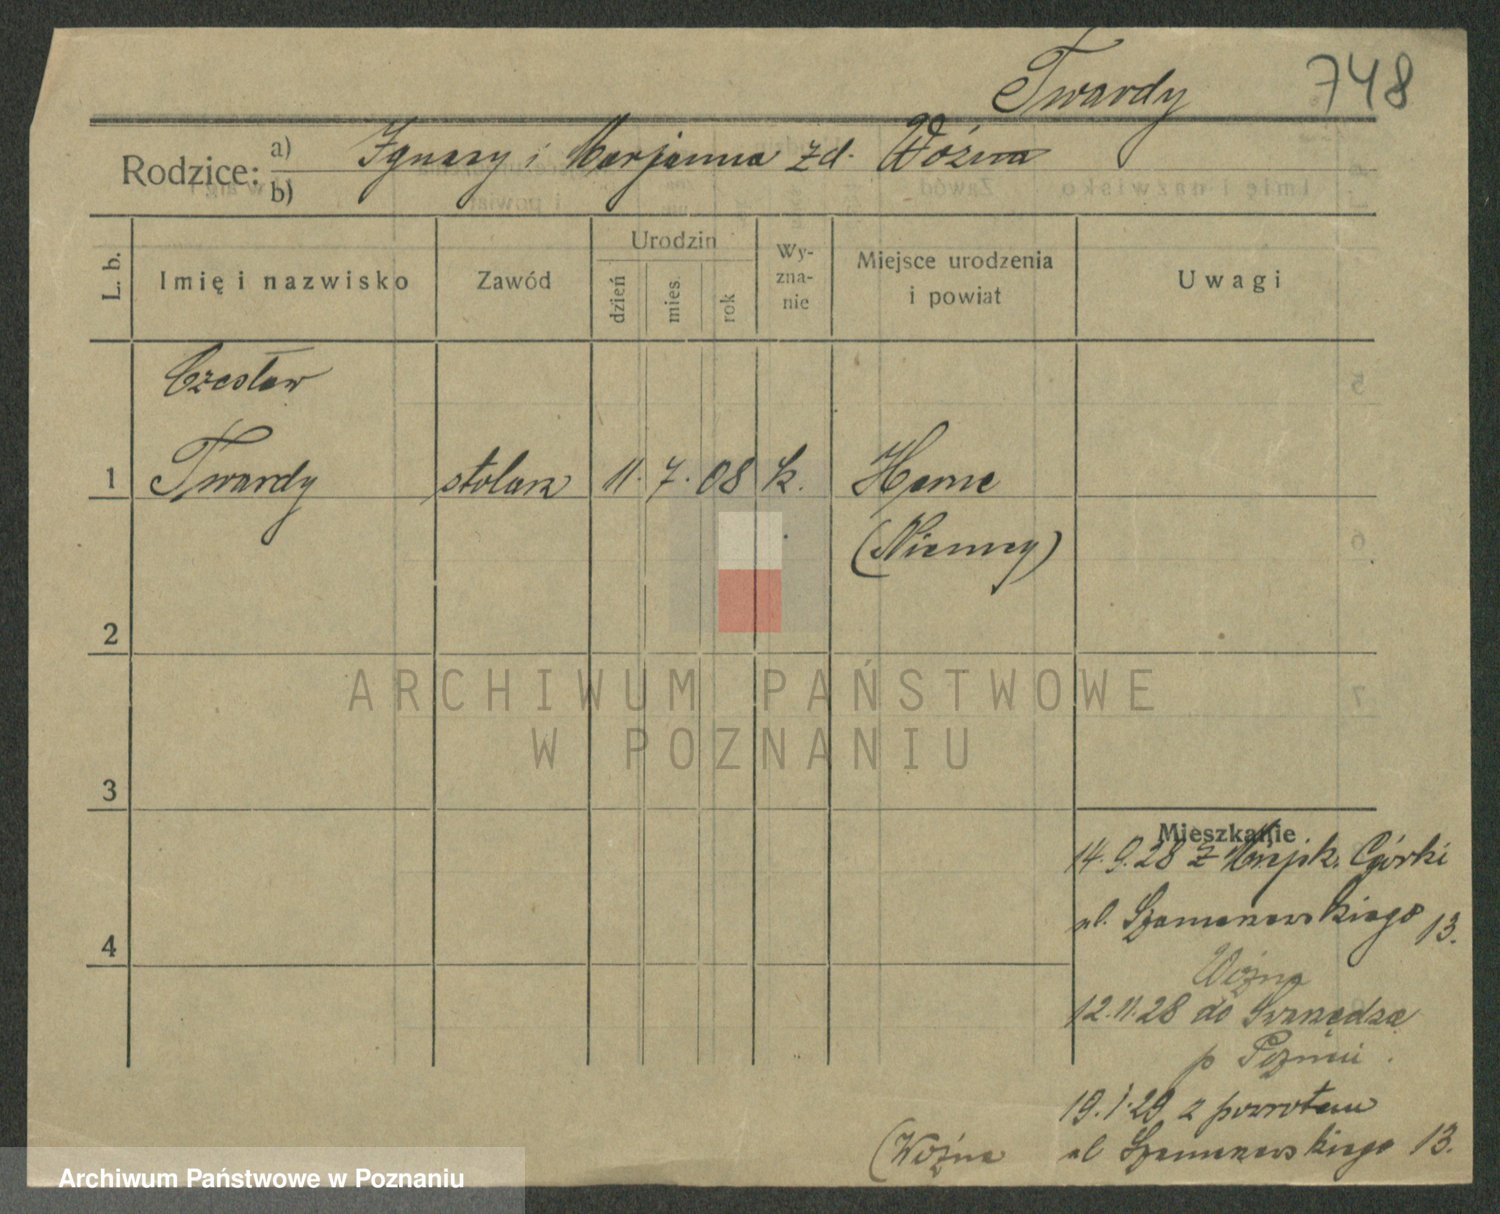 Twardy 748
Rodzice: a) b) Ignacy i Marjanna zd. Woźna
L. b. Imię i nazwisko Zawód Urodzin dzień mies. rok Wy-zna-nie Miejsce urodzenia i powiat Uwagi
Czesław
1 Twardy stolarz 11. 7. 08 k. Herne
(Niemcy)
2
3
4
Mieszkanie
14.9.28 z Górki
ul. Szamarzewskiego 13.
Woźna
12.11.28 do Swarzędza
p Pozn
19.1.29 z powrotem
(Woźna ul Szamarzewskiego 13.
ARCHIWUM PAŃSTWOWE
W POZNANIU
Archiwum Państwowe w Poznaniu